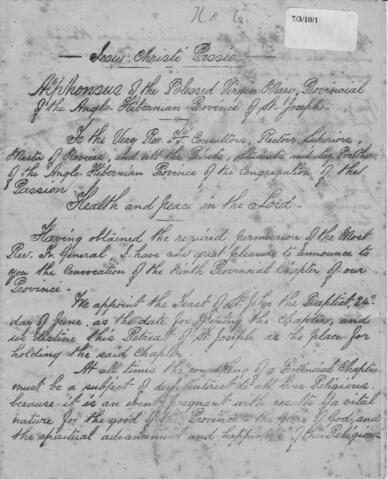 No 6
7/3/10/1
Jesu Christi Passio
Alphonsus of the Blessed Virgin Mary, Provincial
of the Anglo Hibernian Province of St. Joseph.
To the Very Rev. Consultors, Rectors, Superiors,
Master of Novices, and all the Priests, Students and Lay Brothers
of the Anglo Hibernian Province of the Congregation of the
Passion
Health and peace in the Lord.
Having obtained the required permission of the Most
Rev. Fr. General, I have now great pleasure to announce to
you the Convocation of the Ninth Provincial Chapter of our
Province.
We appoint the Feast of St. John the Baptist, 24th
day of June, as the date for opening the Chapter, and
we destine this Retreat of St. Joseph as the place for
holding the said Chapter.
At all times the convoking of a Provincial Chapter
must be a subject of deep interest to all true Religious,
because it is an event pregnant with results of a vital
nature for the good of the Province - the glory of God, and
the spiritual advancement and happiness of the Religious